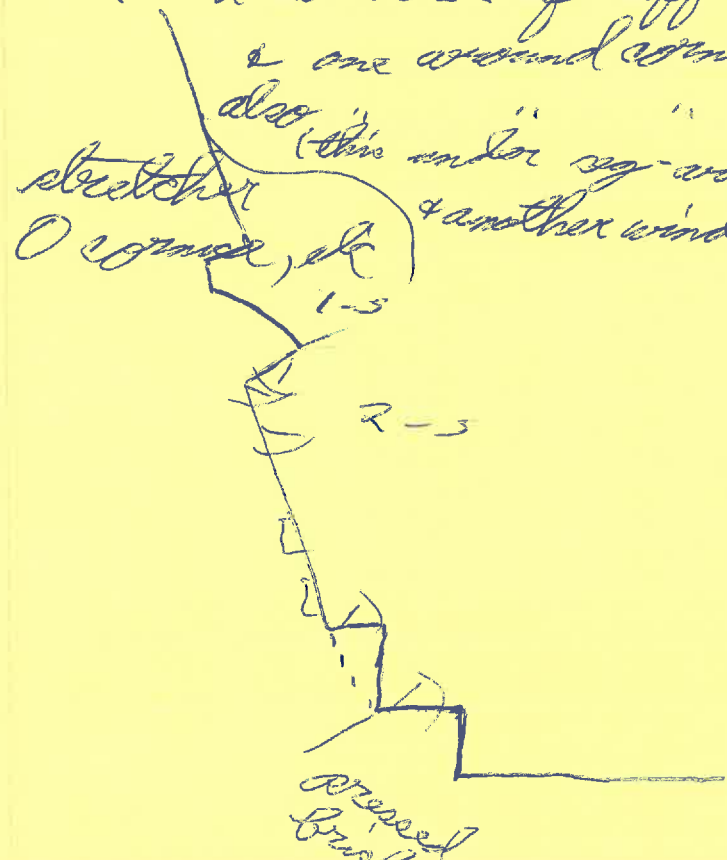 & one around corn
also " " "
(this under seg-
stretcher
& another wind
O cornice, etc
1-5
2-3
pressed
brick